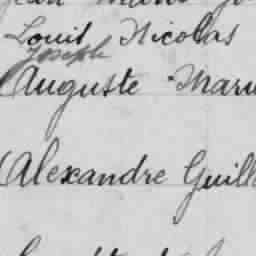 Louis Nicolas
Joseph
Auguste Marie
Alexandre Guill